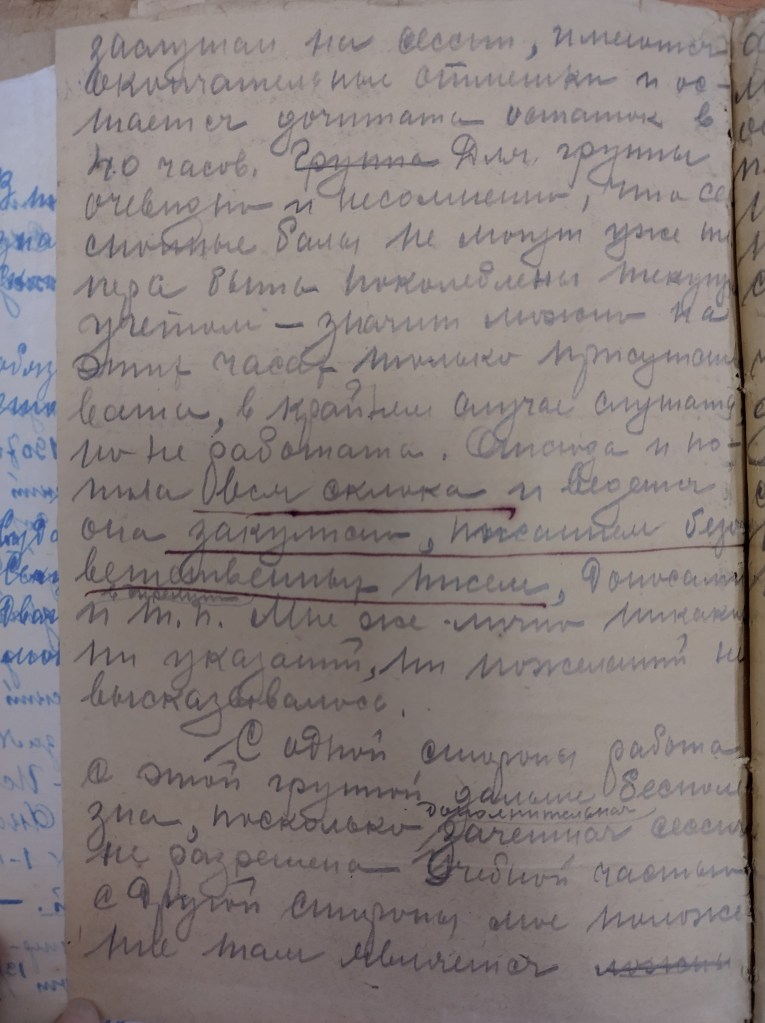 заслушан на сессии, имеются
окончательные отметки и ос-
тается дочитать остаток в
40 часов. Группа Для группы
очевидно и несомненно, что се
сионные балы не могут уже те
перь быть поколеблены текущ
учетом – значит можно на
этих часах только присутство
вать, в крайнем случае слушать,
но не работать. Отсюда и по-
шла вся склока и ведется
она закулисам, писанием безо
ветственных писем, доносами
в дирекцию
и т.п. Мне же лично никаки
ни указаний, ни пожеланий не
высказывалось.
С одной стороны работа
с этой группой дальше беспол
дополнительная
зна, поскольку зачетная сессия
не разрешена Учебной частью
с другой стороны мое положе
ние там является